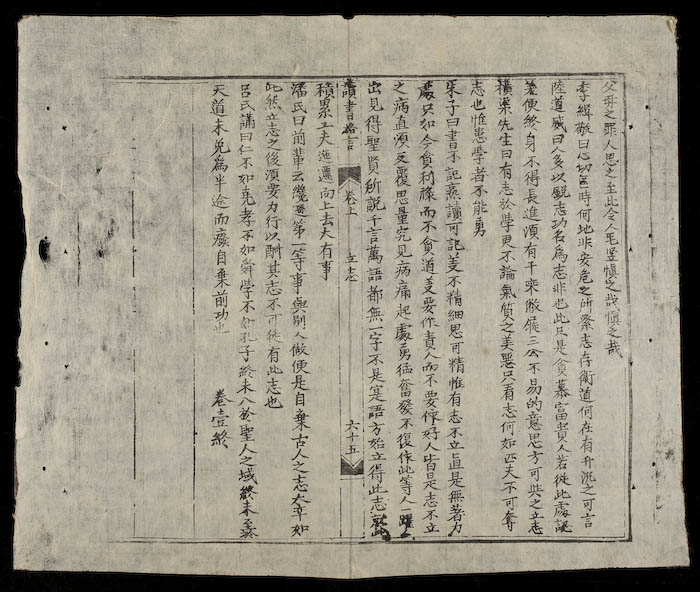 父母之罪人思之至此令人毛竖慎之哉慎之哉
李緝敬曰心功無時何地非安危之所系志存衛道何在有升沉之可言
陸道威曰人多以銳志功名為志非也此只是貪慕富貴人若從此處認
差便終身不得長進須有千乘敝屣三公不易的意思方可與之立志
橫渠先生曰有志於學更不論氣質之美惡只看志何如匹夫不可奪
志也惟患學者不能勇
朱子曰書不記熟讀可記義不精細思可精惟有志不立直是無著力
處只如今貪利祿而不貪道義要作貴人而不要作好人皆是志不立
之病直須反覆思量究見病痛起處勇猛奮發不復作此等人一躍
出見得聖賢所說千言萬語都無一字不是寔語方始立得此志就此
讀書格言 卷上 立志 六十五
積累工夫迤邐向上去大有事
潘氏曰前輩云纔要第一等事與別人做便是自棄古人之志大率如
此然立志之後須要力行以酬其志不可徒有此志也
呂氏誦曰仁不如堯孝不如舜學不如孔子終未入於聖人之域終未至於
天道未免為半途而廢自棄前功也
卷壹終